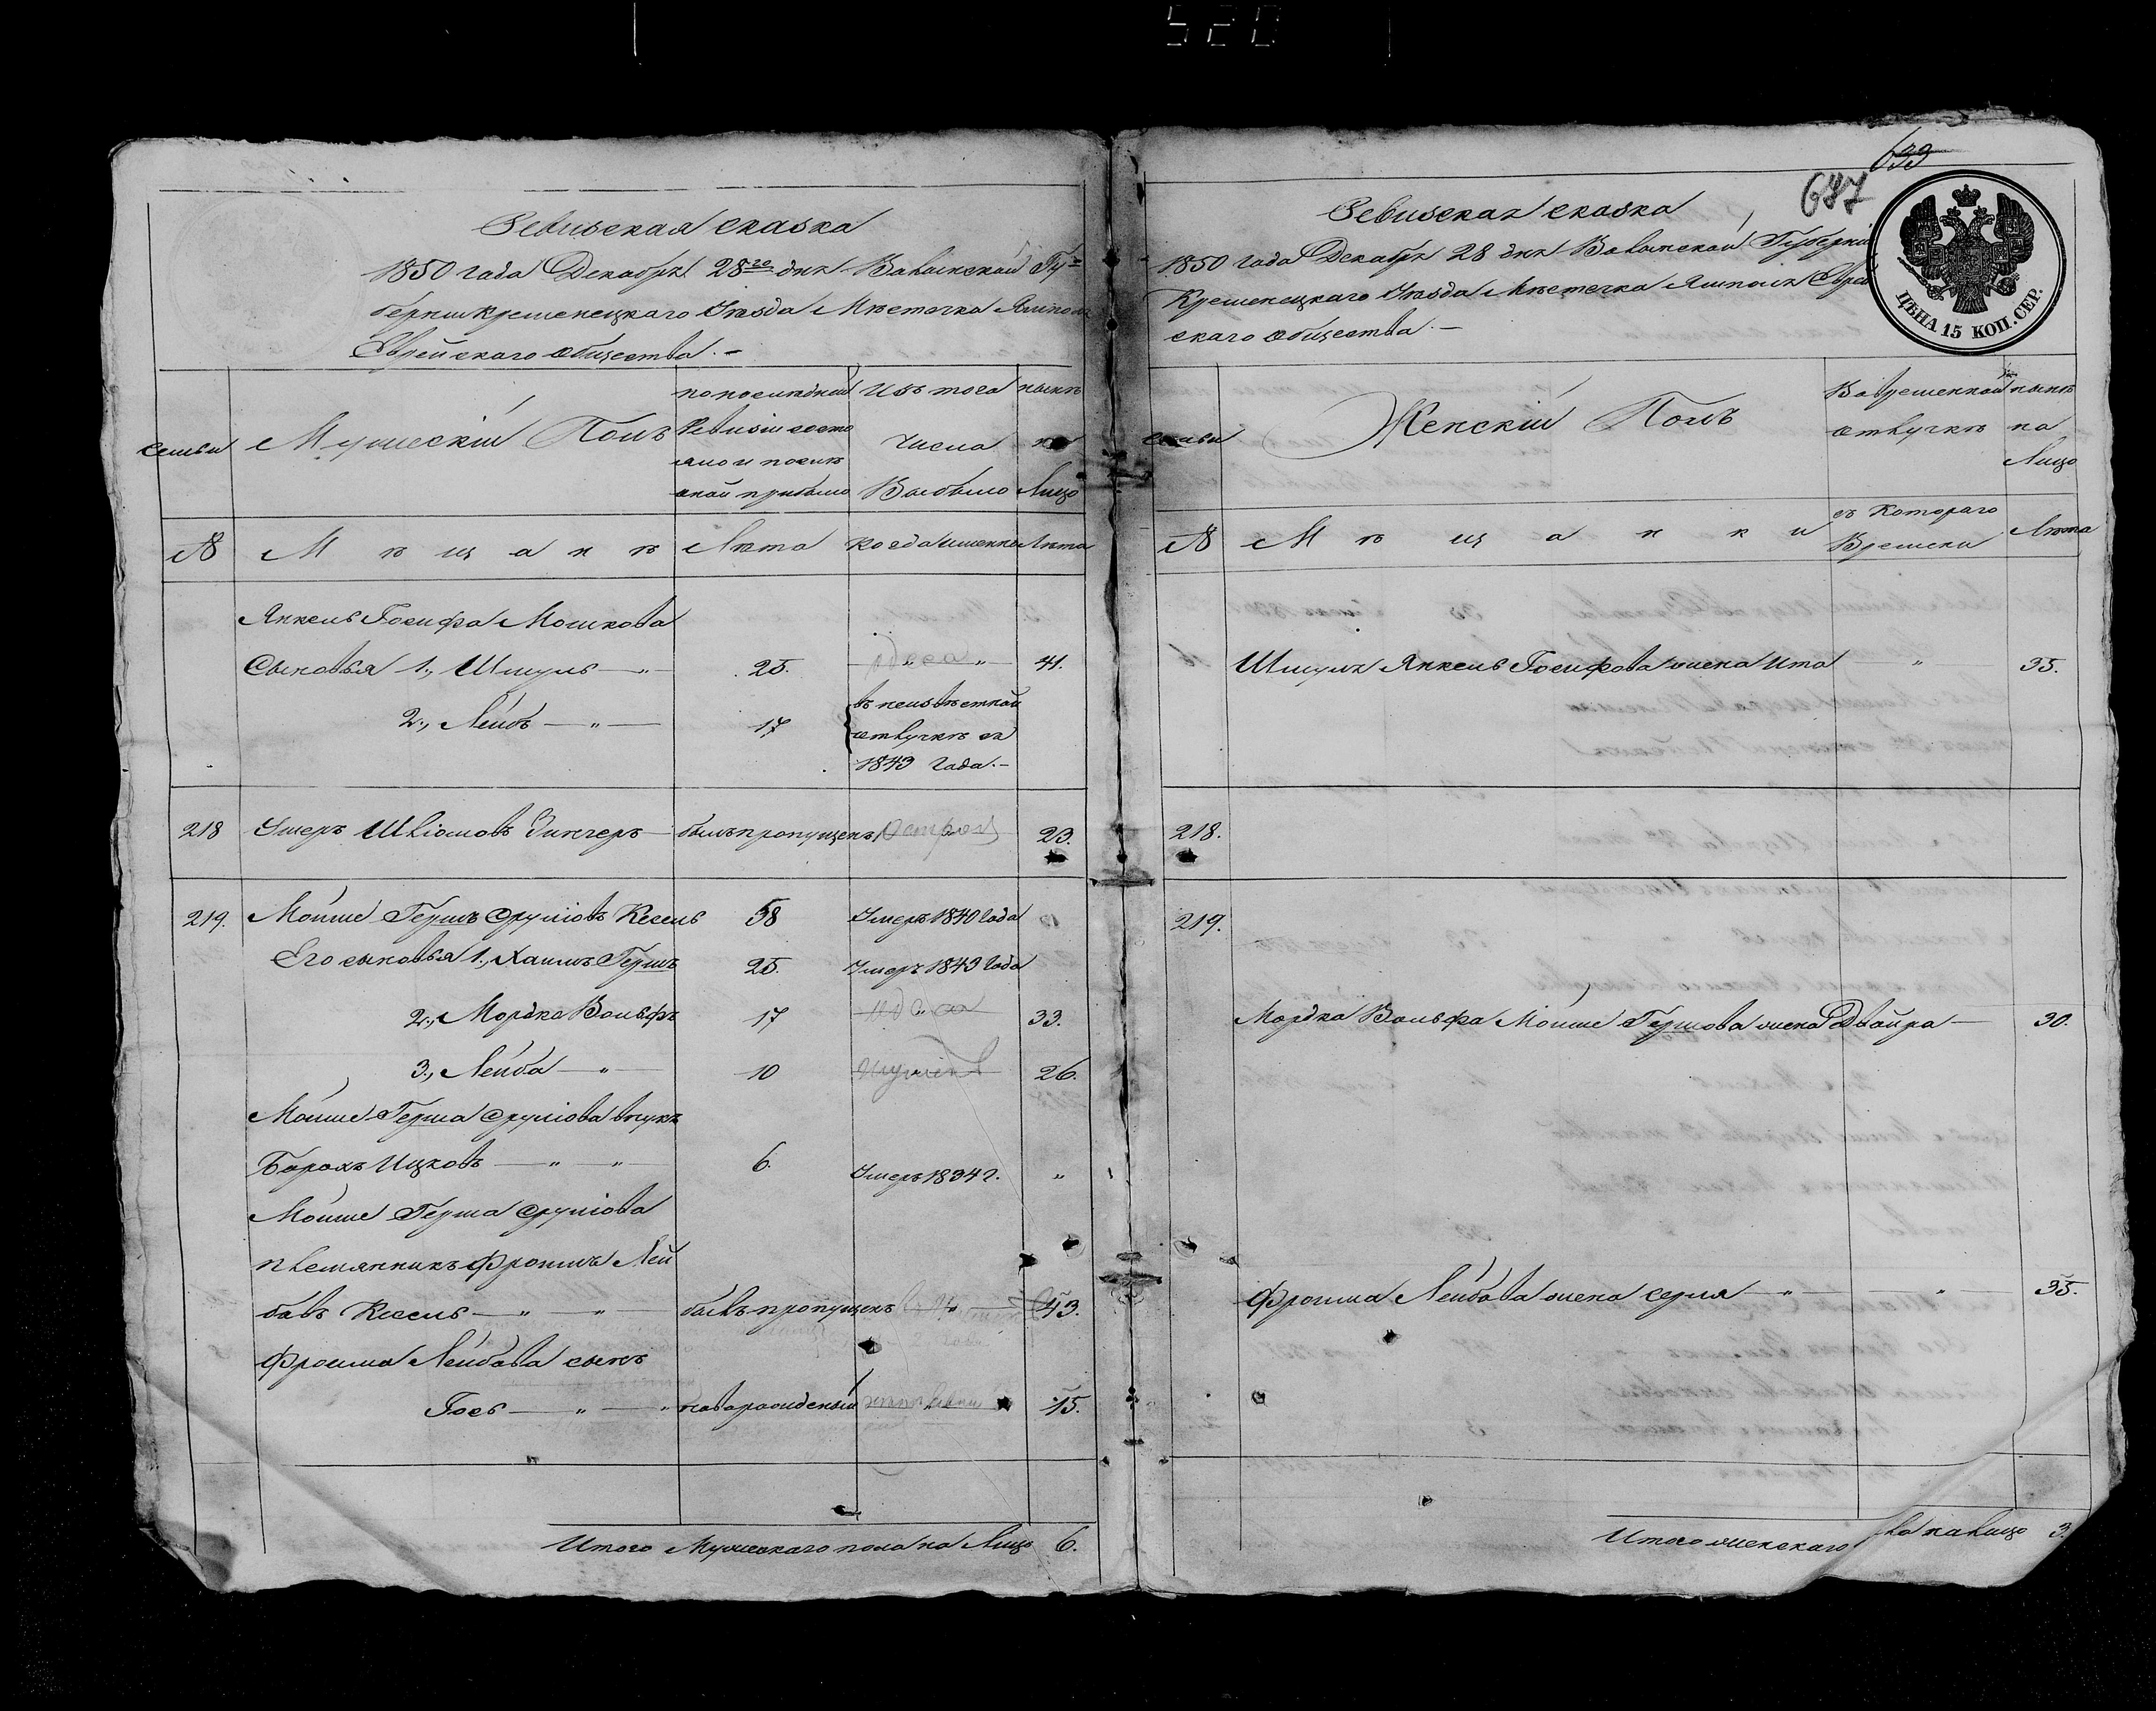 520
Ревизская сказка
1850 года Декабря 28го дня Волынской Гу=
бернии Кременецкаго Уѣзда Мѣстечка Ямполя
Еврейскаго общества.-
семьи
Мужескій Полъ
по последней
Ревизіи состо
яло и после
оной прибыло
Изъ того
Числа
Выбыло
нынѣ
на
Лицо
№
Мѣщанѣ
Лѣта
когда именно
Лѣта
Янкель Іосифа Мошкова
Сыновья 1., Шмуль — " 25. 41.
2., Лейбъ — " — 17
въ неизвѣстной
отлучкѣ съ
1843 года.-
218 Умеръ Шліомовъ былъ пропущенъ 23.
219. Мойше Гершъ Сруліовъ Кесель 58 Умеръ 1840 года
Его сыновья 1., Хаимъ Гершъ 25. Умеръ 1843 года
2., Мордко Вольфъ 17 33.
3., Лейба — " — 10 26.
Мойше Герша Сруліова внукъ
Борохъ Ицковъ — " — " 6. Умеръ 1834 г. "
Мойше Герша Сруліова
племянникъ Фроимъ Лей
бовъ Кесель — " — " — былъ пропущенъ 43.
Фроима Лейбова сынъ
Іось — " — " новорожденый 15.
Итого Мужескаго пола на Лицо 6.
633
647
Ревизская сказка
1850 года Декабря 28 дня Волынской Губерніи
Кременецкаго Уѣзда Мѣстечка Ямполя Еврей
скаго общества.-
ЦѢНА 15 КОП. СЕР.
семьи
Женскій Полъ
Во временной
отлучкѣ
нынѣ
на
Лицо
№
Мѣщанки
съ Котораго
Времени
Лѣта
Шмуля Янкель Іосифова жена Ита " 35.
218.
219.
Мордка Вольфа Мойше Гершова жена Двойра — 30.
Фроима Лейбова жена Сурля — " — " 35.
Итого женскаго на лицо 3.